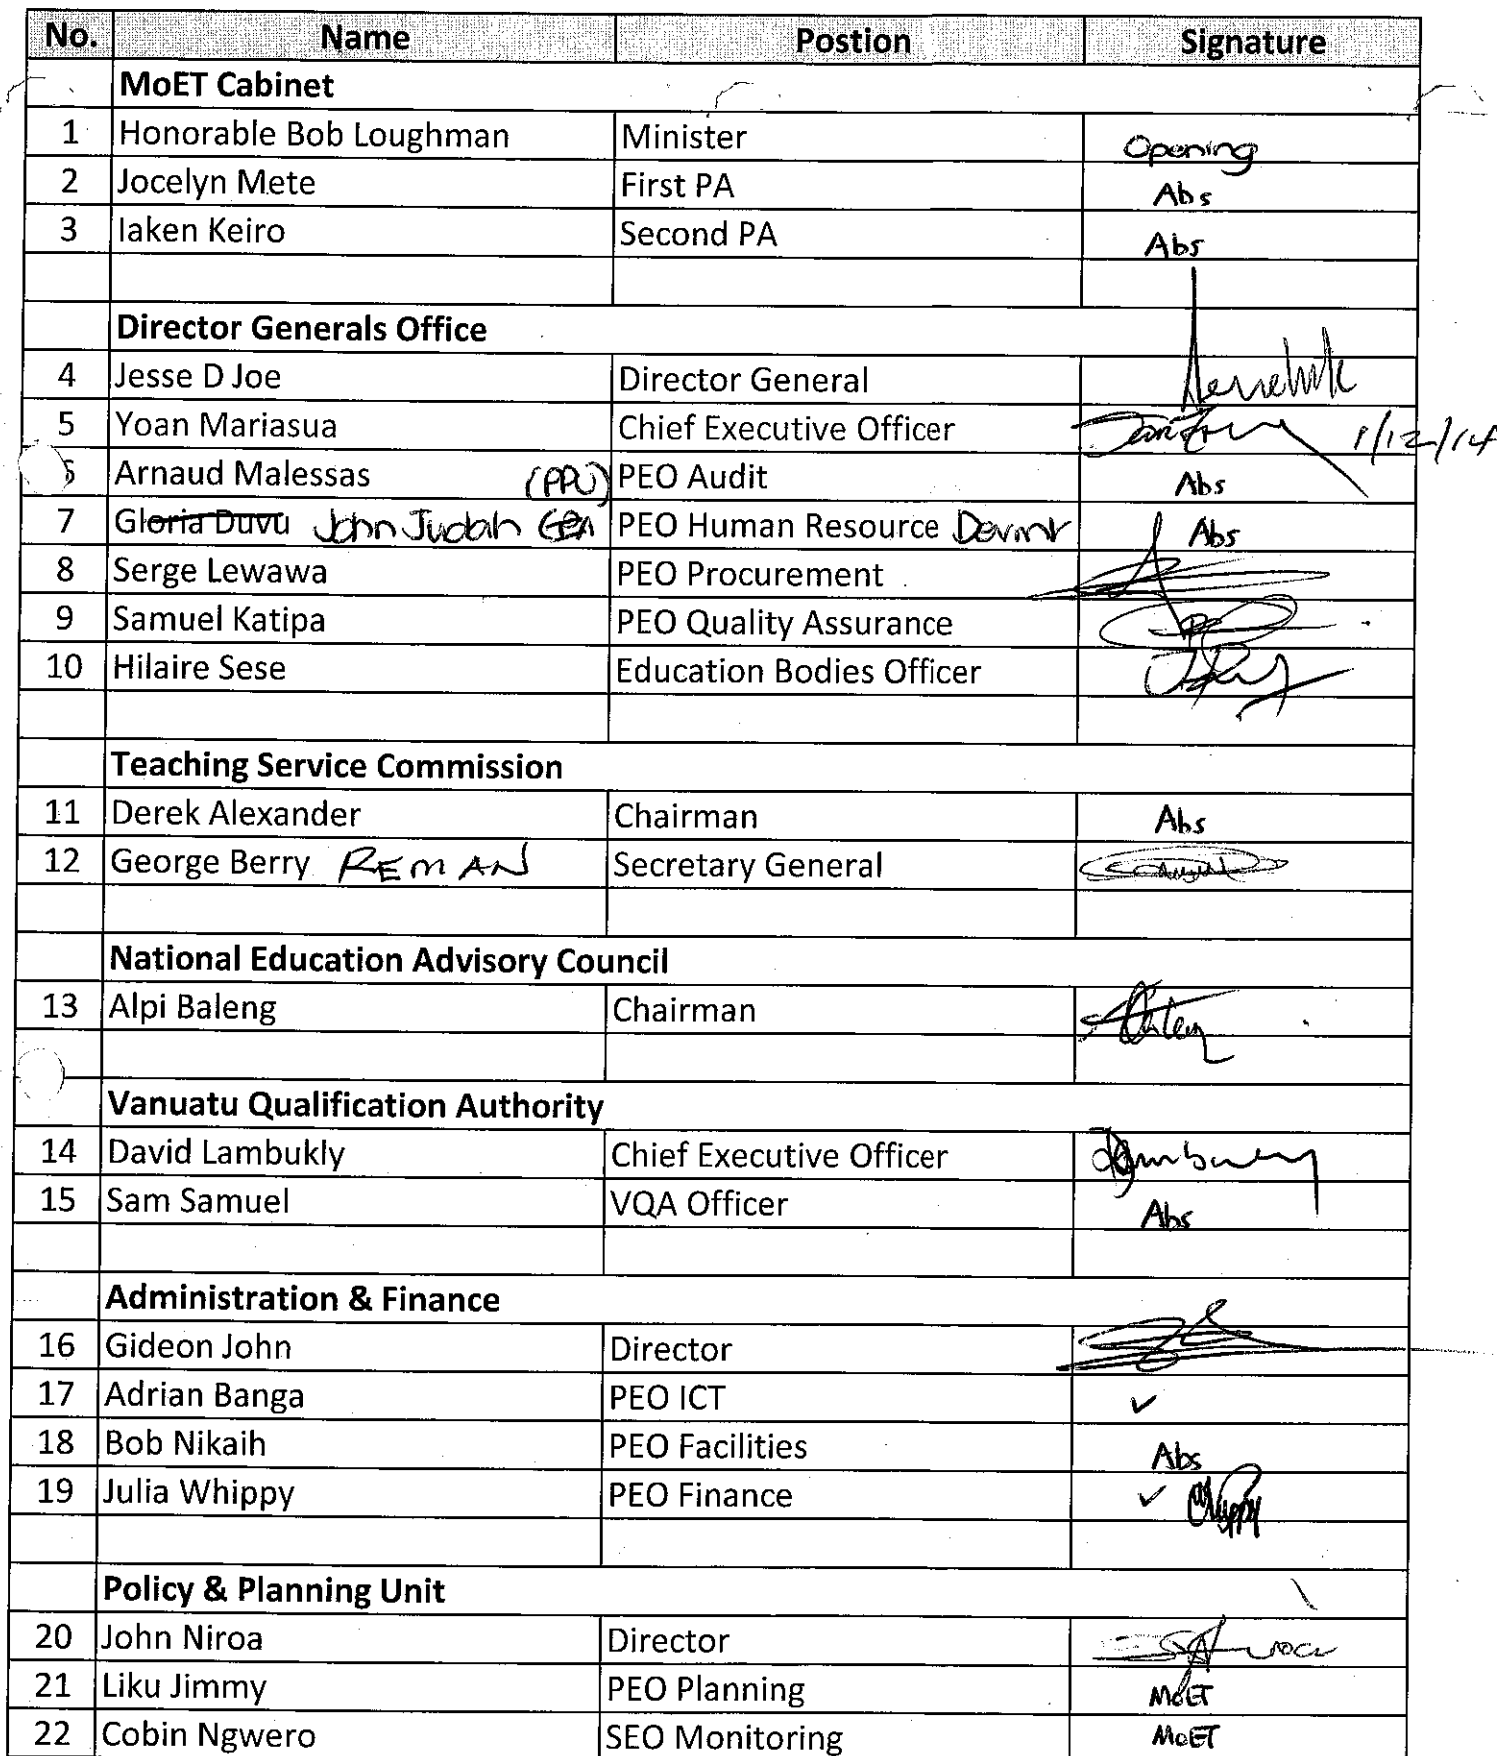 No. Name Postion Signature
MoET Cabinet
1 Honorable Bob Loughman Minister Opening
2 Jocelyn Mete First PA Abs
3 Iaken Keiro Second PA Abs
Director Generals Office
4 Jesse D Joe Director General
5 Yoan Mariasua Chief Executive Officer 1/12/14
6 Arnaud Malessas (PPU) PEO Audit Abs
7 Gloria Duvu John Judah PEO Human Resource Abs
8 Serge Lewawa PEO Procurement
9 Samuel Katipa PEO Quality Assurance
10 Hilaire Sese Education Bodies Officer
Teaching Service Commission
11 Derek Alexander Chairman Abs
12 George Berry REMAN Secretary General
National Education Advisory Council
13 Alpi Baleng Chairman
Vanuatu Qualification Authority
14 David Lambukly Chief Executive Officer
15 Sam Samuel VQA Officer Abs
Administration & Finance
16 Gideon John Director
17 Adrian Banga PEO ICT ✓
18 Bob Nikaih PEO Facilities Abs
19 Julia Whippy PEO Finance ✓
Policy & Planning Unit
20 John Niroa Director
21 Liku Jimmy PEO Planning MoET
22 Cobin Ngwero SEO Monitoring MoET